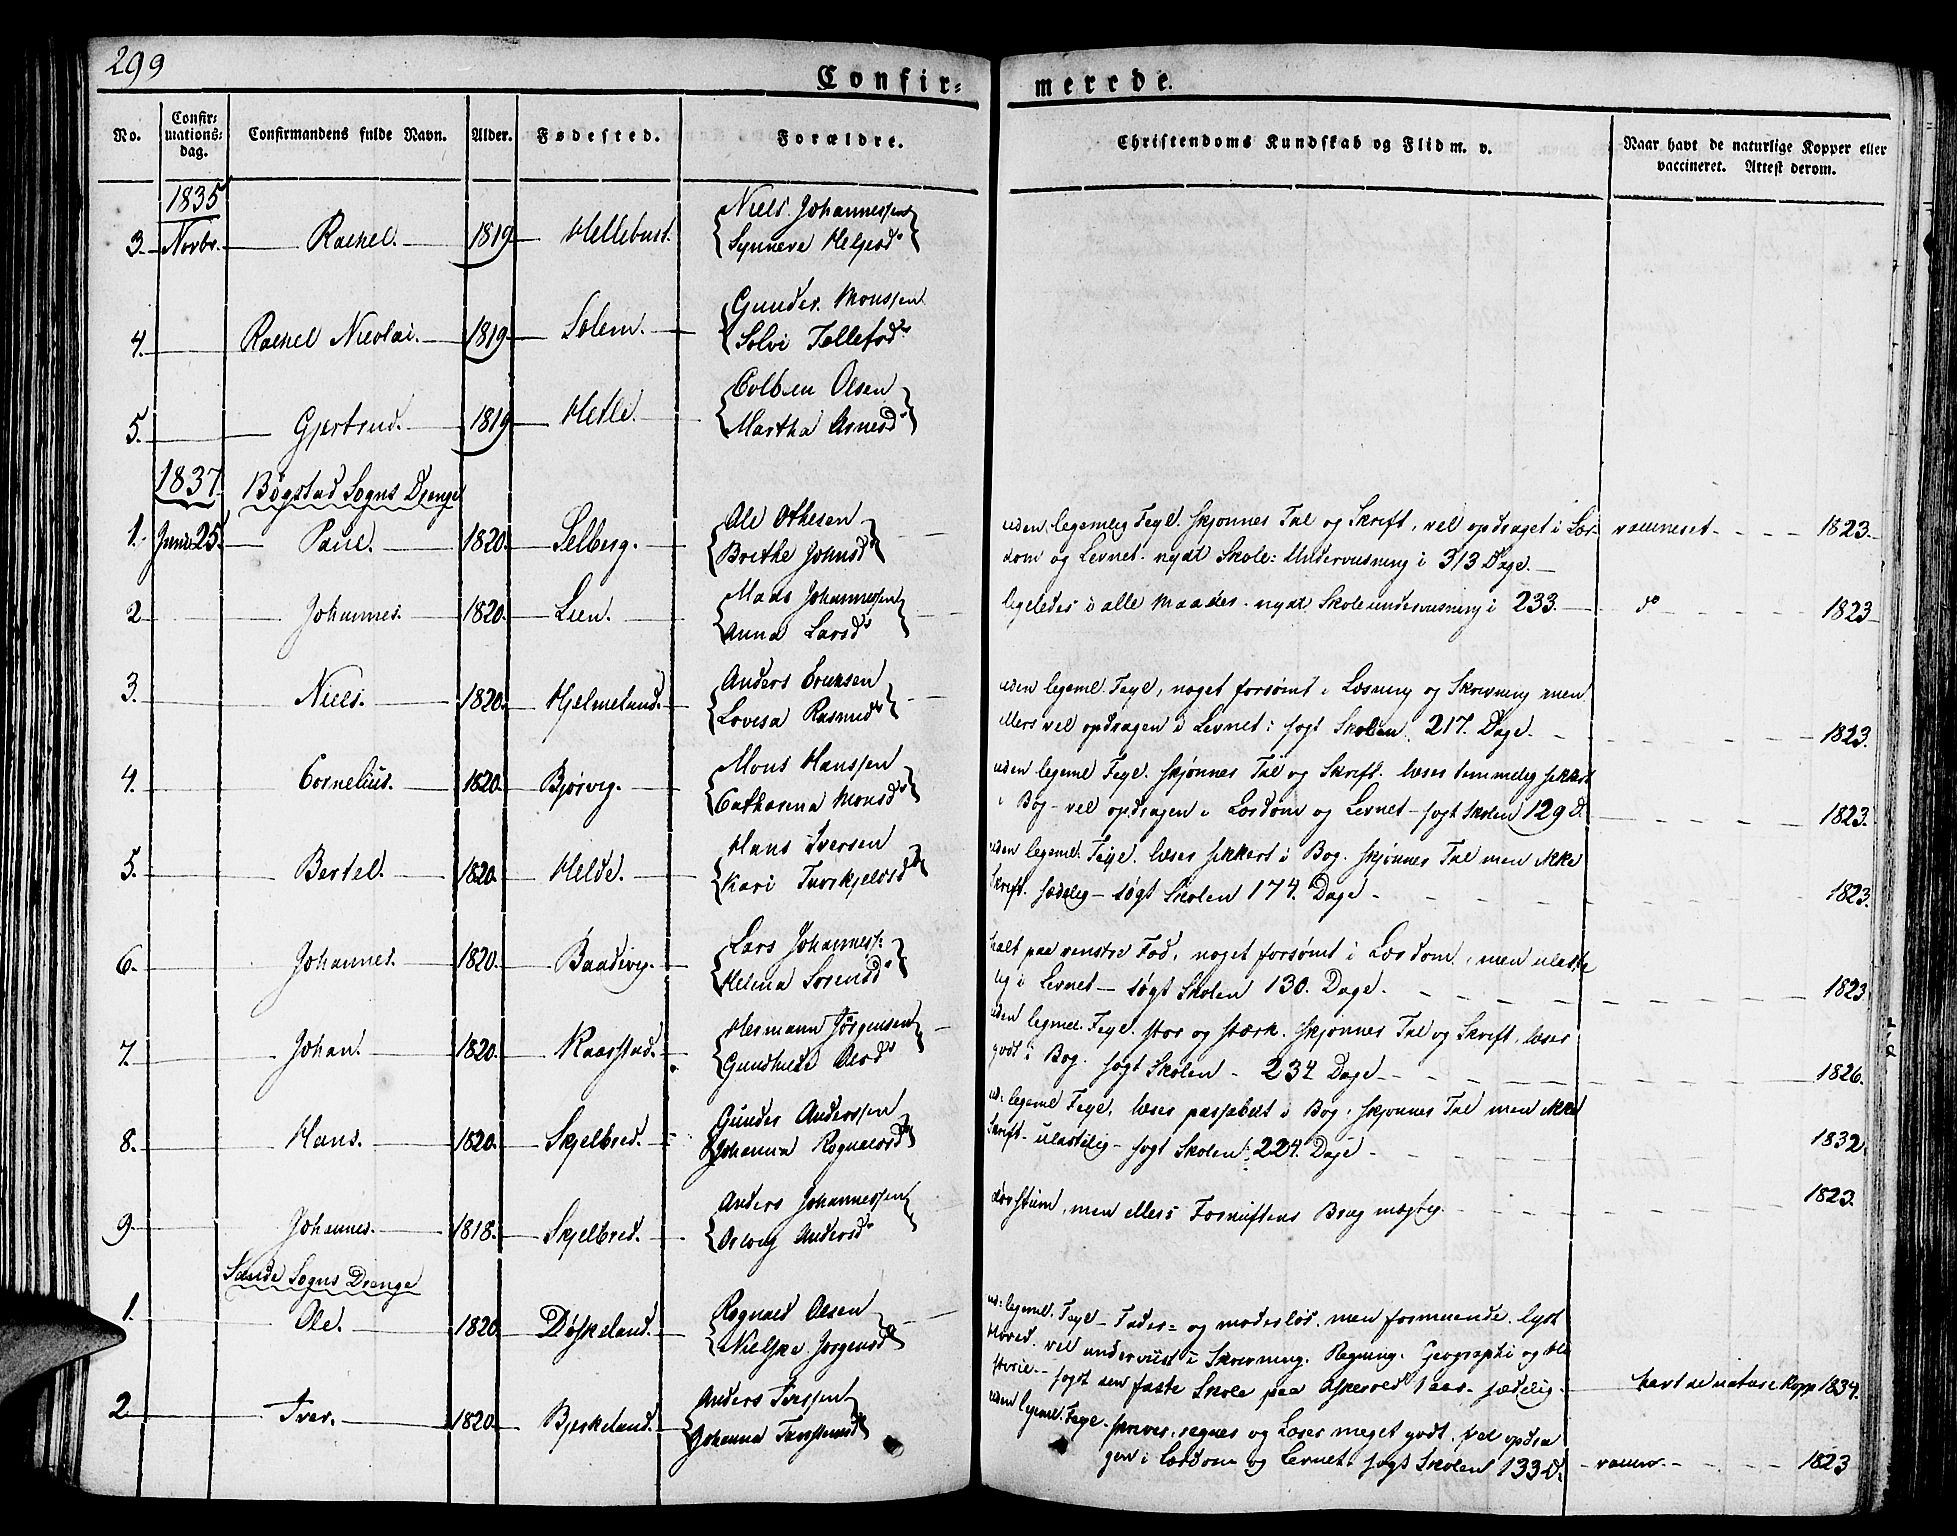 299
Confir=
merede.
No.
Confir=
mations=
dag.
Confirmandens fulde Navn.
Alder.
Fødested.
Forældre.
Christendoms Kundskab og Flid m. v.
Naar havt de naturlige Kopper eller
vaccineret. Attest derom.
1835
3. Novbr. Rachel. 1819 Hellebust.
Niels Johannessen
Synneve Helgesd.
4. Rachel Nicolai. 1819 Solem.
Gunder Monssen
Solvi Tollefsd.
5. Gjertrud. 1819 Hetle.
Colben Olsen
Martha Arnesd.
1837 Bøgstad Sogns Drenge
1. Juni 25. Paul. 1820. Selberg.
Ole Othesen
Brethe Johnsd.
uden legemlig Feyl. skjønnes Tal og Skrift, vel opdraget i Lær- vaccineret 1823.
dom og Levnet. nydt Skole: Underviisning i 313 Dage.
2 Johannes. 1820. Lien.
Mads Johannessen
Anna Larsd.
ligeledes i alle Maader. nydt Skoleunderviisning i 233. do 1823
3. Niels. 1820. Hjelmeland.
Anders Erichsen
Lovisa Rasmusd.
uden legeml. Feyl, noget forsømt i Læsning og Skrivning men
ellers vel opdragen i Levnet: søgt Skolen 217. Dage. 1823.
4. Cornelius. 1820. Bjørvig.
Mons Hanssen
Catharina Monsd.
uden legeml Feyl. skjønnes Tal og Skrift. læser temmelig sikkert
i Bog - vel opdragen i Lærdom og Levnet - søgt Skolen 129 D. 1823.
5. Bertel. 1820. Helde.
Hans Iversen
Kari Torkjelsd.
uden legeml. Feyl. læser sikkert i Bog. skjønnes Tal men ikke
Skrift. sædelig - søgt Skolen 174. Dage - 1823.
6. Johannes. 1820. Baadvig.
Lars Johanness:
Helena Sørensd.
halt paa venstre Fod, noget forsømt i Lærdom, men ulaste
lig i Levnet - søgt Skolen 130. Dage. 1823
7. Johan. 1820. Kaarstad.
Hermann Jørgensen
Gundhilde Olesd.
uden legmel. Feyl. stor og stærk. skjønnes Tal og Skrift, læser
godt i Bog. søgt Skolen - 234 Dage 1826.
8. Hans. 1820. Skjelbred.
Gunder Anderssen
Johanna Rognaldsd.
ud: legeml Feyl. læser passabelt i Bog. skjønnes Tal men ikke
Skrift - ulastelig - søgt Skolen: 224. Dage - 1832.
9. Johannes. 1818. Skjelbred.
Anders Johannessen
Andersd.
døvstum, men ellers Fornuftens Brug mægtig. 1823.
Sande Sogns Drenge
1. Ole. 1820. Døskeland.
Rognald Olsen
Nielske Jørgensd.
ud: legeml. Feyl - Fader= og moderløs. men formuende. lyst
Hoved. vel underviist i Skrivning. Regning. Geographi og Hi
storie - søgt den faste Skole paa Askevold 1 aar. sædelig. havt de naturl Kopp 1834.
2 Iver. 1820. Bjerkeland.
Anders Iverssen
Johanna Thorsteinsd.
uden legeml. Feyl - skriver, regner og Læser meget godt. vel opdra
gen i Lærdom og Levnet. søgt Skolen 133 D. vaccin. 1823